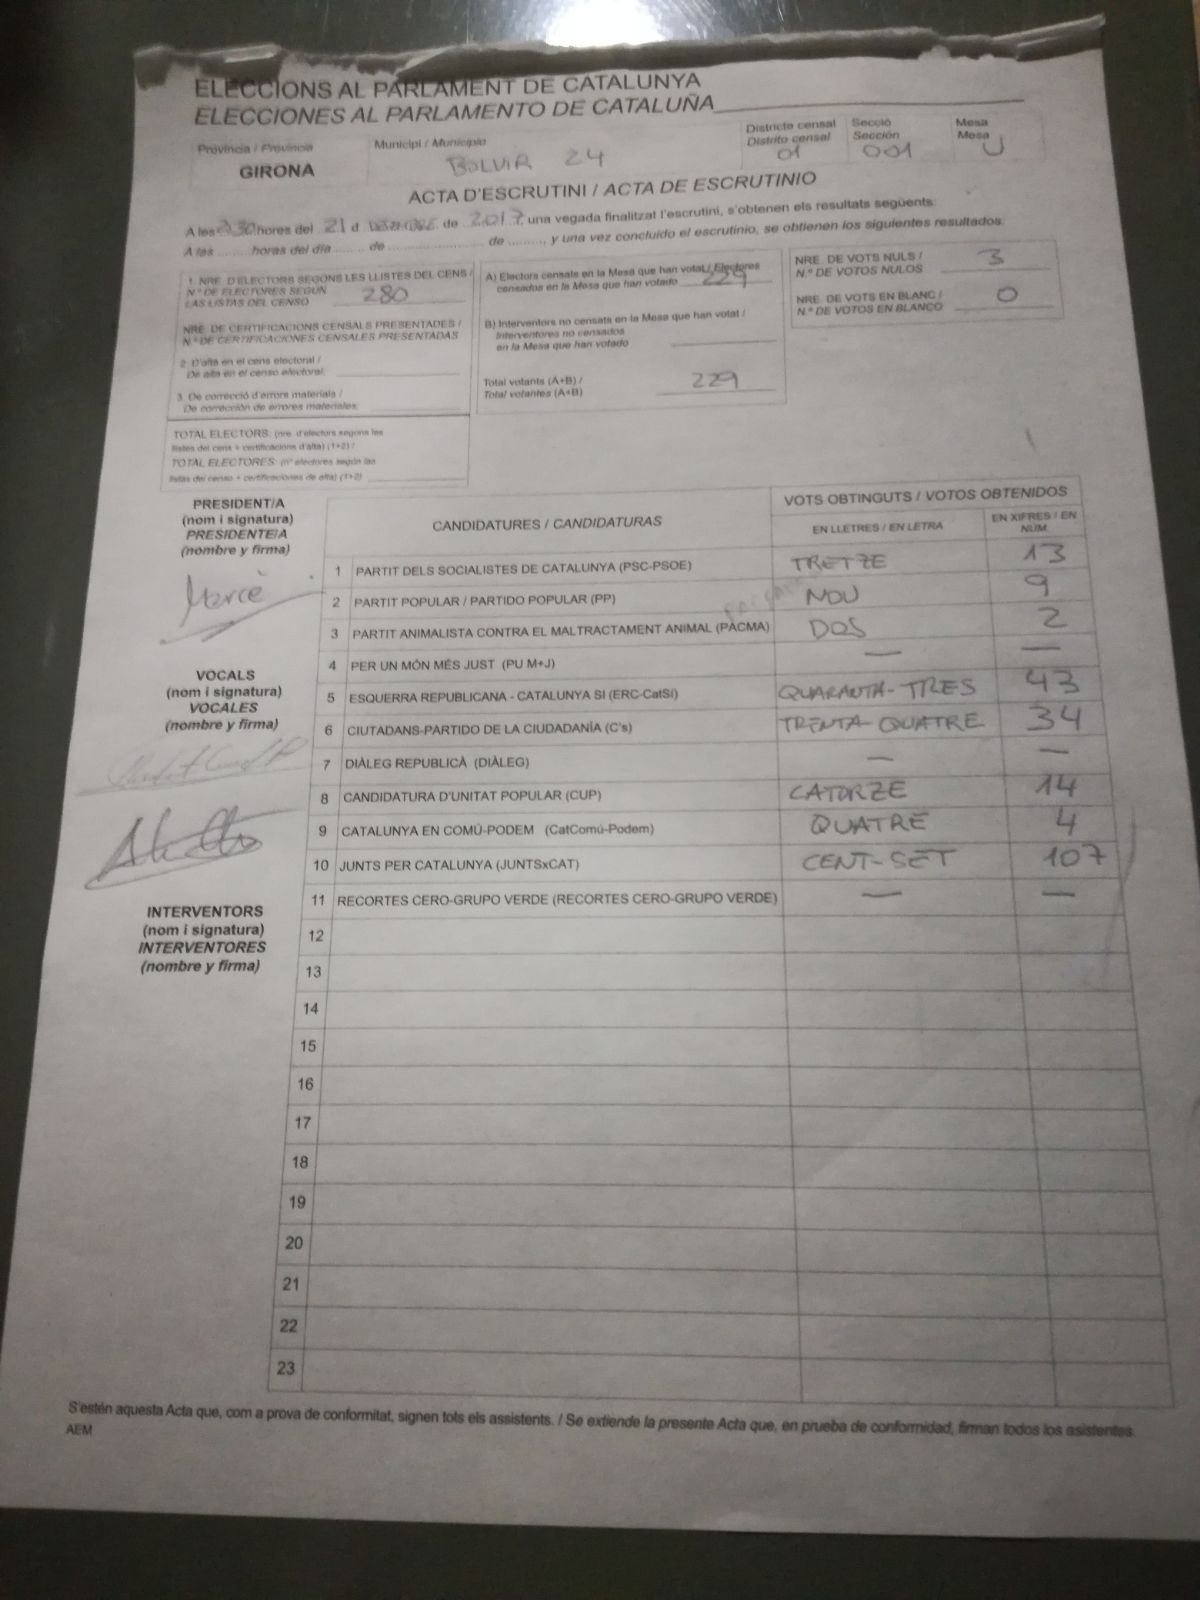 ELECCIONS AL PARLAMENT DE CATALUNYA
ELECCIONES AL PARLAMENTO DE CATALUÑA
Província / Provincia
GIRONA
Municipi / Municipio
BOLVIR 24
Districte censal
Distrito censal
01
Secció
Sección
001
Mesa
Mesa
U
ACTA D'ESCRUTINI / ACTA DE ESCRUTINIO
A les hores del 21 d DESEMBRE de 2017, una vegada finalitzat l'escrutini, s'obtenen els resultats següents:
A las ........ horas del día ....... de ........................ de ........, y una vez concluido el escrutinio, se obtienen los siguientes resultados:
1. NRE. D'ELECTORS SEGONS LES LLISTES DEL CENS /
N.º DE ELECTORES SEGÚN
LAS LISTAS DEL CENSO 280
NRE. DE CERTIFICACIONS CENSALS PRESENTADES /
N.º DE CERTIFICACIONES CENSALES PRESENTADAS
2. D'alta en el cens electoral /
De alta en el censo electoral:
3. De correcció d'errors materials /
De corrección de errores materiales:
TOTAL ELECTORS: (nre. d'electors segons les
llistes del cens + certificacions d'alta) (1+2) /
TOTAL ELECTORES: (nº electores según las
listas del censo + certificaciones de alta) (1+2)
A) Electors censats en la Mesa que han votat / Electores
censados en la Mesa que han votado 229
B) Interventors no censats en la Mesa que han votat /
Interventores no censados
en la Mesa que han votado
Total votants (A+B) /
Total votantes (A+B) 229
NRE. DE VOTS NULS /
N.º DE VOTOS NULOS 3
NRE. DE VOTS EN BLANC /
N.º DE VOTOS EN BLANCO 0
PRESIDENT/A
(nom i signatura)
PRESIDENTE/A
(nombre y firma)
Mercè
VOCALS
(nom i signatura)
VOCALES
(nombre y firma)
INTERVENTORS
(nom i signatura)
INTERVENTORES
(nombre y firma)
CANDIDATURES / CANDIDATURAS
VOTS OBTINGUTS / VOTOS OBTENIDOS
EN LLETRES / EN LETRA
EN XIFRES / EN NÚM.
1 PARTIT DELS SOCIALISTES DE CATALUNYA (PSC-PSOE) TRETZE 13
2 PARTIT POPULAR / PARTIDO POPULAR (PP) NOU 9
3 PARTIT ANIMALISTA CONTRA EL MALTRACTAMENT ANIMAL (PACMA) DOS 2
4 PER UN MÓN MÉS JUST (PU M+J) — —
5 ESQUERRA REPUBLICANA - CATALUNYA SI (ERC-CatSí) QUARANTA-TRES 43
6 CIUTADANS-PARTIDO DE LA CIUDADANÍA (C's) TRENTA-QUATRE 34
7 DIÀLEG REPUBLICÀ (DIÀLEG) — —
8 CANDIDATURA D'UNITAT POPULAR (CUP) CATORZE 14
9 CATALUNYA EN COMÚ-PODEM (CatComú-Podem) QUATRE 4
10 JUNTS PER CATALUNYA (JUNTSxCAT) CENT-SET 107
11 RECORTES CERO-GRUPO VERDE (RECORTES CERO-GRUPO VERDE) — —
12
13
14
15
16
17
18
19
20
21
22
23
S'estén aquesta Acta que, com a prova de conformitat, signen tots els assistents. / Se extiende la presente Acta que, en prueba de conformidad, firman todos los asistentes.
AEM